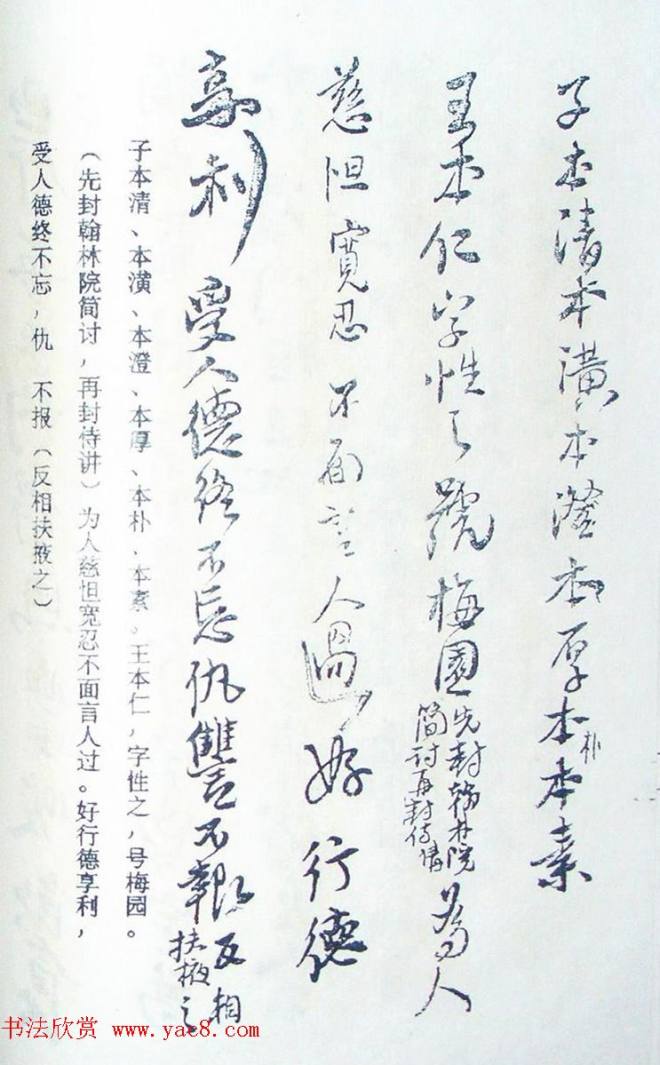 子本清本潢本澄本厚本朴本素
王本仁字性之號梅園先封翰林院简讨再封侍講為人
慈怛寬忍不面言人過好行德
享利受人德终不忘仇讐不報反相扶掖之
子本清、本潢、本澄、本厚、本朴、本素。王本仁，字性之，号梅园。
（先封翰林院简讨，再封侍讲）为人慈怛宽忍不面言人过。好行德享利，
受人德终不忘，仇 不报（反相扶掖之）
书法欣赏 www.yac8.com